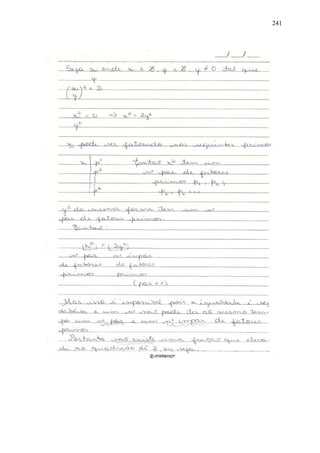 241
__/__/__
Seja x onde x ∈ Z, y ∈ Z, y ≠ 0 tal que
y
(x)² = 2
(y)
x² = 2 => x² = 2y²
y²
x pode ser fatorado nos seguintes primos
x | p¹ Então x² tem um
| p² nº par de fatores
| primos p₁, p₁,
| pⁿ p₂, p₂ ...
y² da mesma forma tem um nº
par de fatores primos.
Então:
(x²) = (2y²)
nº par nº ímpar
de fatores de fatores
primos primos
(par + 1)
Mas isso é impossível pois a igualdade é ver
dadeira e um nº não pode ter ao mesmo tem-
po um nº par e um nº ímpar de fatores
primos.
Portanto não existe uma fração que eleva
da ao quadrado dê 2, ou seja